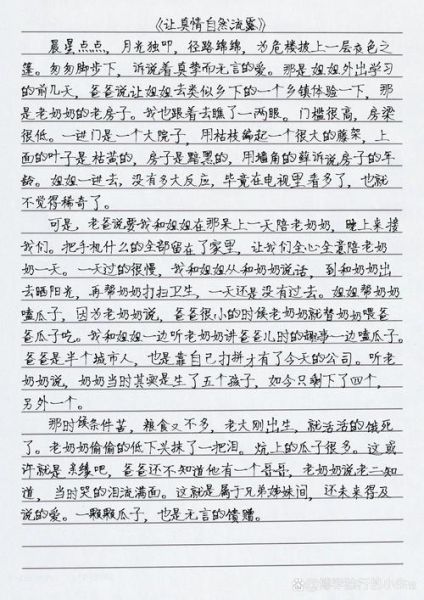 《让真情自然流露》
晨星点点，月光独叩，径路绵绵，为危楼披上一层夜色之
篷。匆匆脚步下，诉说着真挚而无言的爱。那是姐姐外出学习
的前几天，爸爸说让姐姐去类似乡下的一个乡镇体验一下，那
是老奶奶的老房子。我也跟着去瞧了一两眼。门槛很高，房梁
很低。一进门是一个大院子，用枯枝编起一个很大的藤架，上
面的叶子是枯黄的，房子是黯黑的，用墙角的藓诉说房子的年
龄。姐姐一进去，没有多大反应，毕竟在电视里看多了，也就
不觉得稀奇了。
可是，老爸说要我和姐姐在那呆上一天陪老奶奶，晚上来接
我们。把手机什么的全部留在了家里，让我们全心全意陪老奶
奶一天。一天过的很慢，我和姐姐从和奶奶说话，到和奶奶出
去晒阳光，再帮奶奶打扫卫生，一天还是没有过去。姐姐帮奶奶
嗑瓜子，因为老奶奶说，爸爸很小的时候老奶奶就替奶奶喂爸
爸瓜子吃。我和姐姐一边听老奶奶讲爸爸儿时的趣事一边嗑瓜子。
爸爸是半个城市人，也是靠自己打拼才有了今天的公司。听老
奶奶说，奶奶当时其实是生了五个孩子，如今只剩下了四个，
另外一个。
那时候条件苦，粮食又不多，老大刚出生，就活活的饿死
了。老奶奶偷偷的低下头抹了一把泪。炕上的瓜子很多。这或
许就是亲缘吧，爸爸还不知道他有一个哥哥，老奶奶说老二知
道，当时哭的泪流满面。这就是属于兄弟姊妹间，还未来得及
说的爱。一颗颗瓜子，也是无言的馈赠。